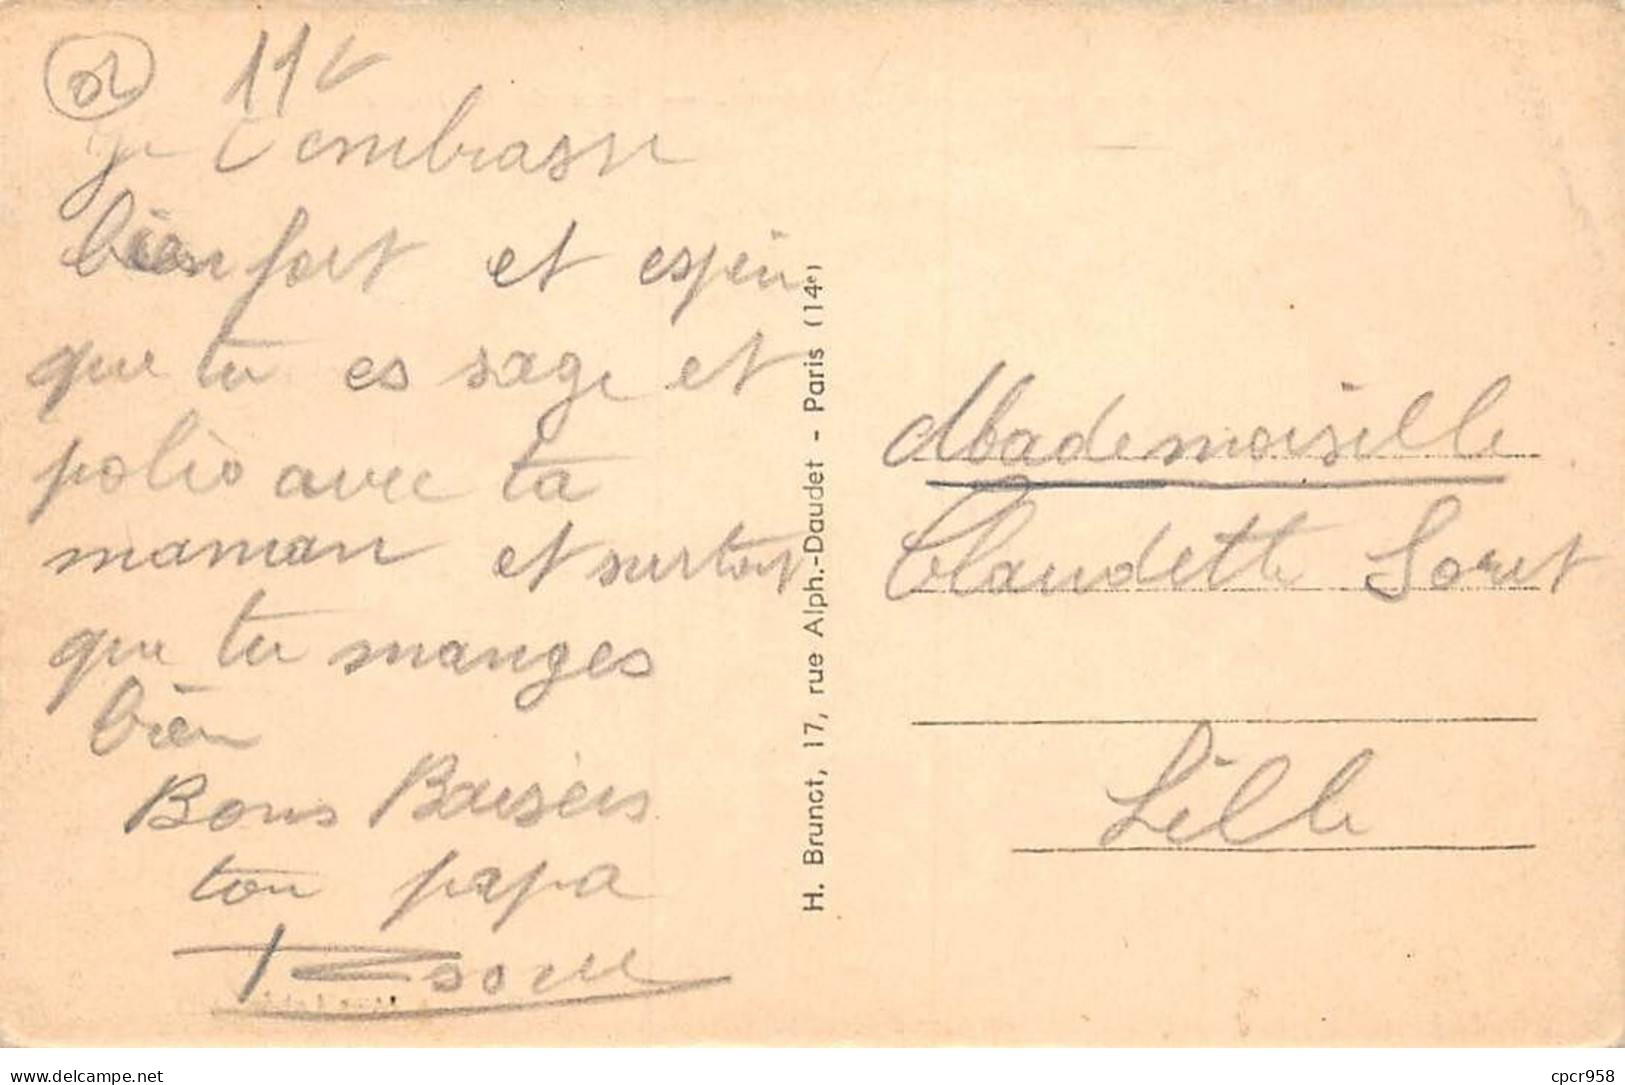 02
Je t'embrasse
bien fort et espère
que tu es sage et
polie avec ta
maman et surtout
que tu manges
bien
Bons Baisers
ton papa
H. Brunot, 17, rue Alph.-Daudet - Paris (14e)
Mademoiselle
Claudette Soret
Lille
cpcr958